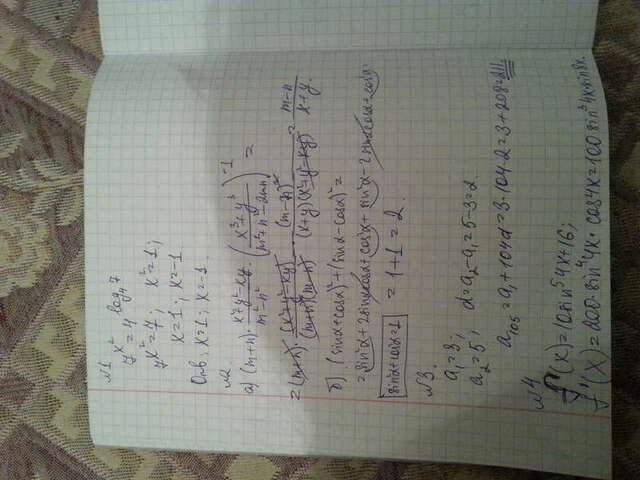 №1
7^{x²} = 4^{log₄7}
7^{x²} = 7; x² = 1;
x = 1; x = -1
Отв: x = 1; x = -1.
№2
а) (m+n) · \frac{x²+y²-xy}{m²-n²} · (\frac{x³+y³}{m²+n²-2mn})^{-1} =
= (m+n) · \frac{(x²+y²-xy)}{(m+n)(m-n)} · \frac{(m-n)²}{(x+y)(x²+y²-xy)} = \frac{m-n}{x+y}.
б) (sinα+cosα)² + (sinα-cosα)² =
= sin²α + 2sinα cosα + cos²α + sin²α - 2sinα cosα + cos²α
sin²α+cos²α=1 = 1+1 = 2.
№3
a₁ = 3;
a₂ = 5; d = a₂ - a₁ = 5 - 3 = 2.
a₁₀₅ = a₁ + 104d = 3 + 104·2 = 3 + 208 = 211.
№4
f(x) = 10sin⁵4x + 16;
f'(x) = 200·sin⁴4x · cos4x = 100 sin³4x sin8x.